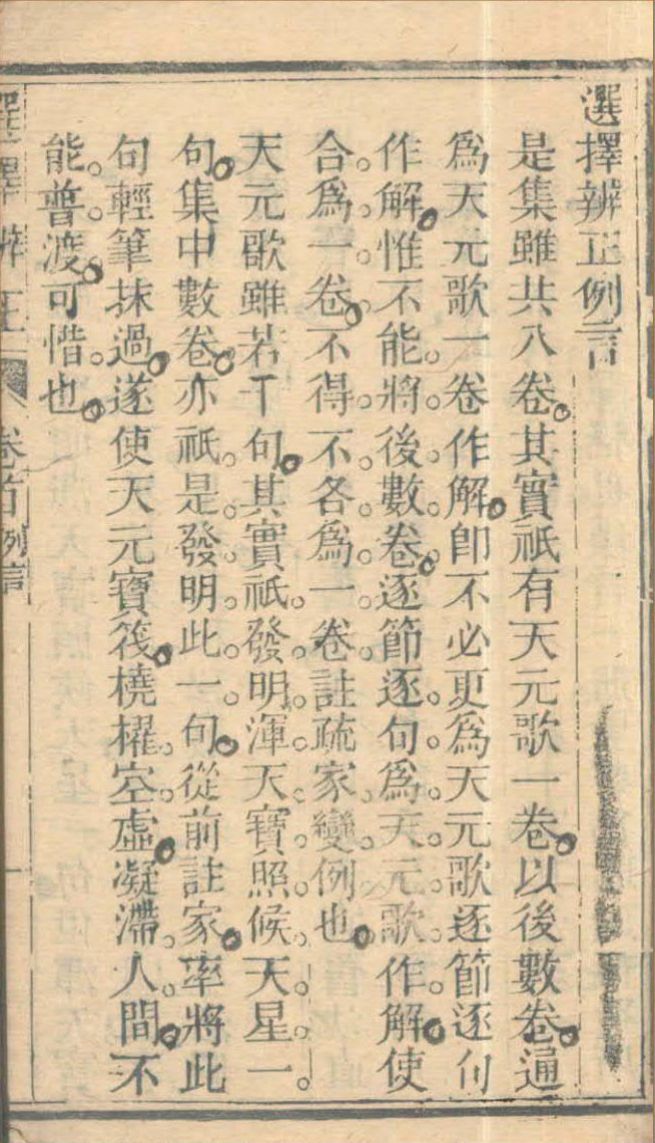 選擇辨正例言
是集雖共八卷其實祇有天元歌一卷以後數卷通
爲天元歌一卷作解卽不必更爲天元歌逐節逐句
作解惟不能將後數卷逐節逐句爲天元歌作解使
合爲一卷不得不各爲一卷註疏家變例也
天元歌雖若干句其實祇發明渾天寶照候天星一
句集中數卷亦祇是發明此一句從前註家率將此
句輕筆抹過遂使天元寶筏橈櫂空虛凝滯人間不
能普渡可惜也
選擇辨正 卷首例言 一